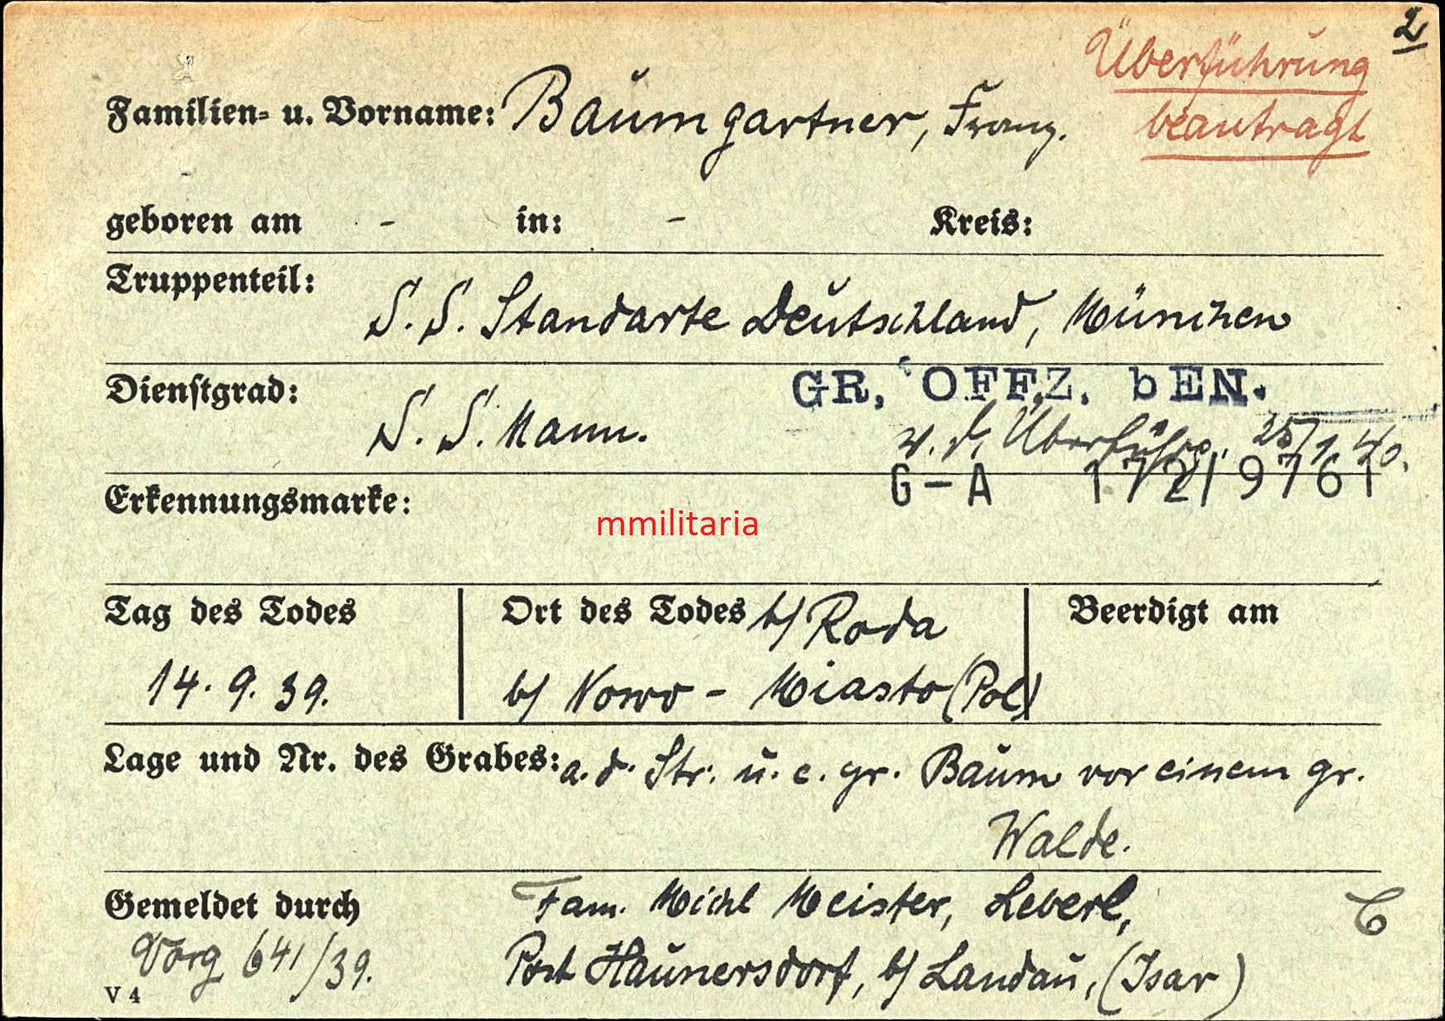 2
Überführung
beantragt
Familien- u. Vorname: Baumgartner, Franz.
geboren am - in: - Kreis:
Truppenteil:
S.S. Standarte Deutschland, München
Dienstgrad:
S.S. Mann.
GR. OFFZ. bEN.
v. d. Überführg. 25/1 40.
G-A 172/9761
Erkennungsmarke:
mmilitaria
Tag des Todes
14. 9. 39.
Ort des Todes b/ Roda
b/ Nowo - Miasto (Pol)
Beerdigt am
Lage und Nr. des Grabes: a. d. Str. u. e. gr. Baum vor einem gr.
Walde.
Gemeldet durch
Vorg 641/39.
Fam. Michl Meister, Leberl,
Post Haunersdorf, b/ Landau, (Isar)
C
V 4